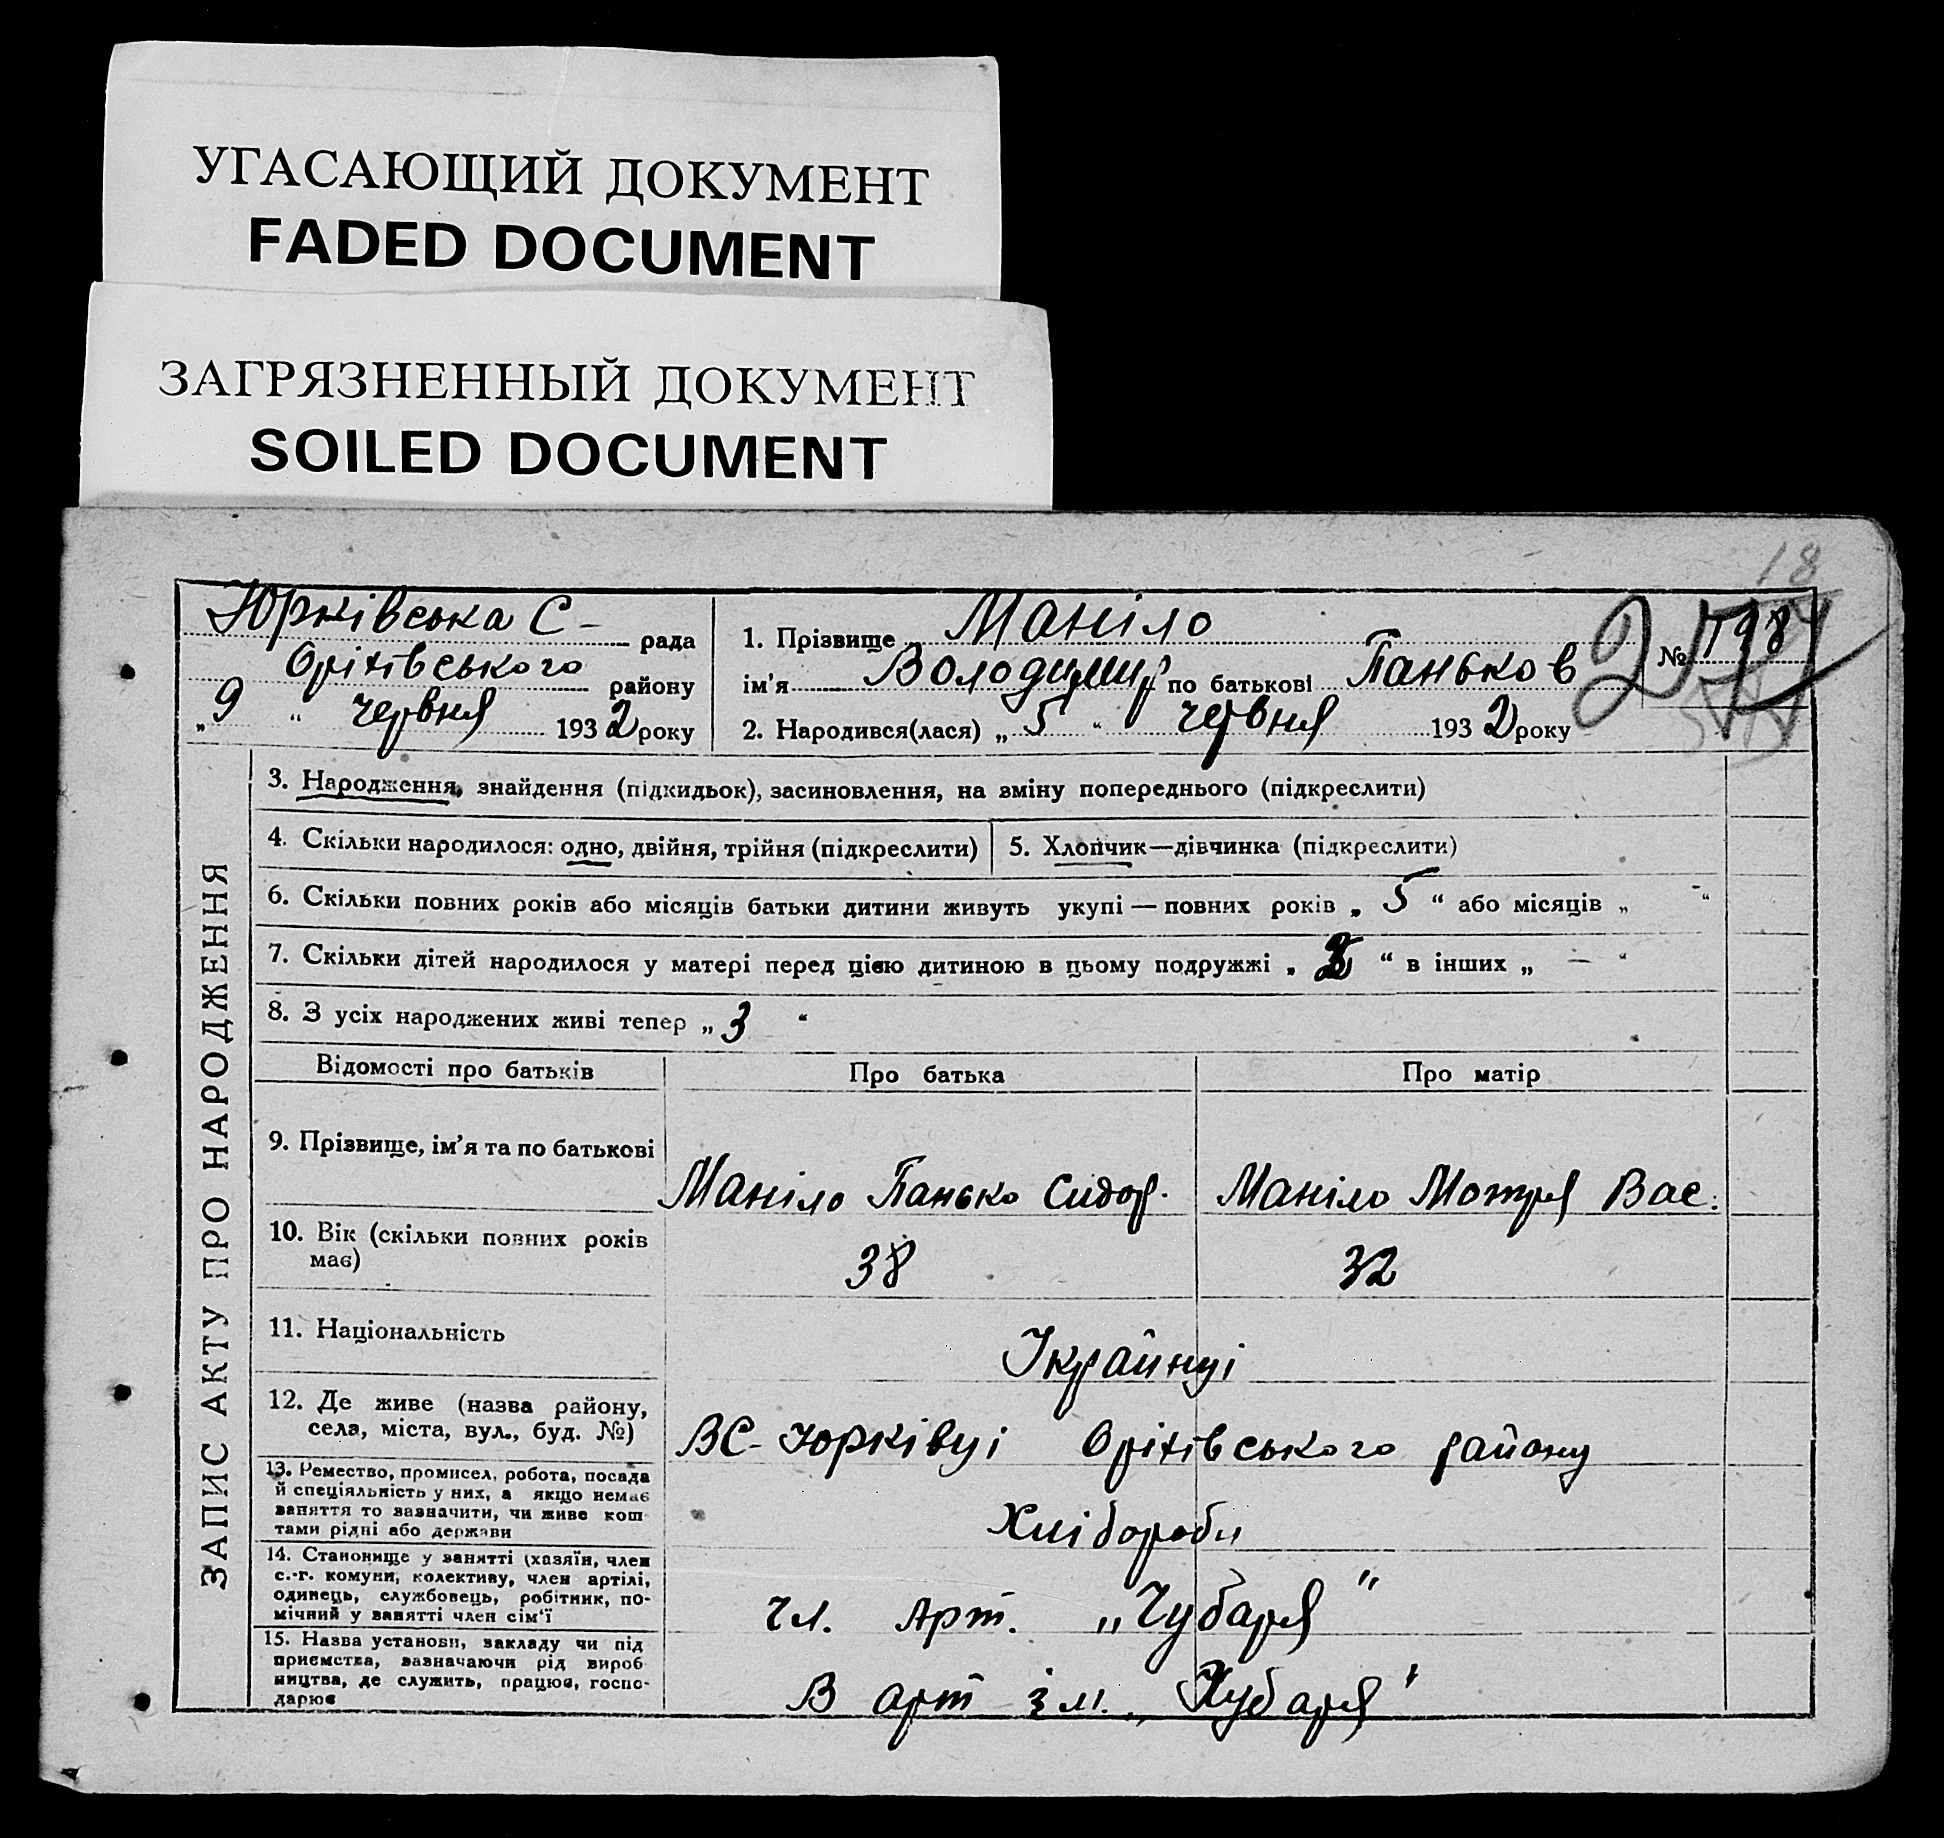 УГАСАЮЩИЙ ДОКУМЕНТ
FADED DOCUMENT
ЗАГРЯЗНЕННЫЙ ДОКУМЕНТ
SOILED DOCUMENT
18
Юрківська С- рада
Оріхівського району
„9“ червня 1932 року
1. Прізвище Маніло
ім'я Володимир по батькові Паньков
2. Народився(лася) „5“ червня 1932 року
№ 198
ЗАПИС АКТУ ПРО НАРОДЖЕННЯ
3. Народження, знайдення (підкидьок), засиновлення, на зміну попереднього (підкреслити)
4. Скільки народилося: одно, двійня, трійня (підкреслити)
5. Хлопчик—дівчинка (підкреслити)
6. Скільки повних років або місяців батьки дитини живуть укупі — повних років „5“ або місяців „ “
7. Скільки дітей народилося у матері перед цією дитиною в цьому подружжі „ “ в інших „ – “
8. З усіх народжених живі тепер „3“
Відомості про батьків
Про батька
Про матір
9. Прізвище, ім'я та по батькові
Маніло Панько Сидор.
Маніло Мотря Вас.
10. Вік (скільки повних років
має)
38
32
11. Національність
Українці
12. Де живе (назва району,
села, міста, вул., буд. №)
В С- Юрківці Оріхівського району
13. Ремество, промисел, робота, посада
й спеціяльність у них, а якщо немає
заняття то зазначити, чи живе кош
тами рідні або держави
Хлібороби
14. Становище у занятті (хазяїн, член
с.-г. комуни, колективу, член артілі,
одинець, службовець, робітник, по-
мічний у занятті член сім'ї
чл. Арт. „Чубаря"
15. Назва установи, закладу чи під
приємства, зазначаючи рід вироб
ництва, де служить, працює, госпо-
дарює
В арт ім. „Чубаря"